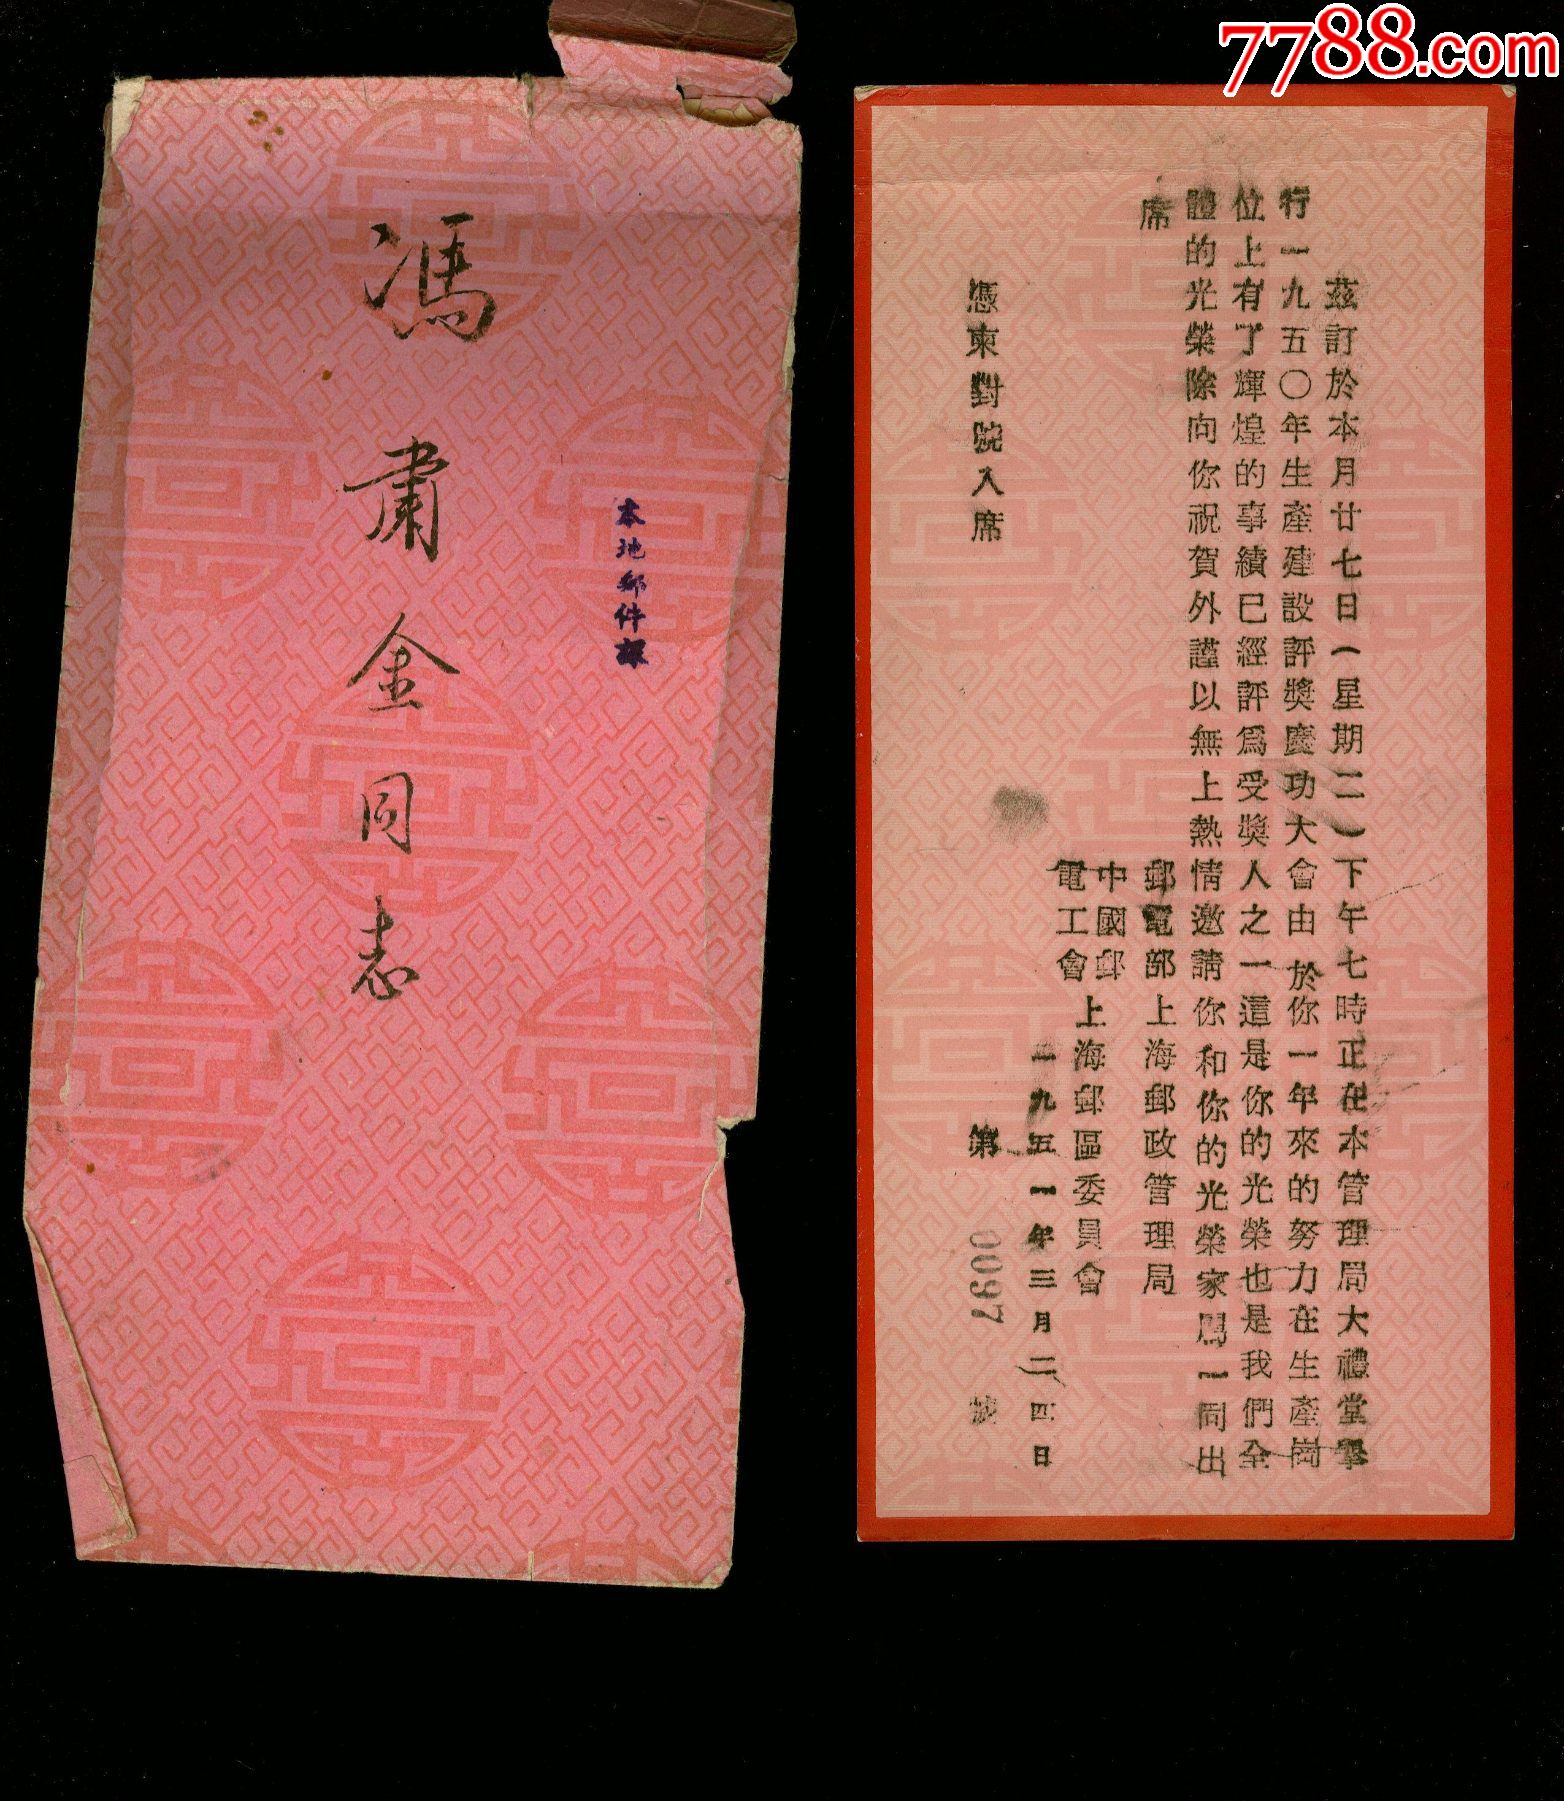 7788.com
馮肅金同志
本地郵件組
茲訂於本月廿七日(星期二)下午七時正在本管理局大禮堂舉
行一九五〇年生產建設評獎慶功大會由於你一年來的努力在生產崗
位上有了輝煌的事績已經評為受獎人之一這是你的光榮也是我們全
體的光榮除向你祝賀外謹以無上熱情邀請你和你的光榮家屬一同出
席
郵電部上海郵政管理局
中國郵電工會上海郵區委員會
一九五一年三月二四日
憑柬對號入席
第0097號